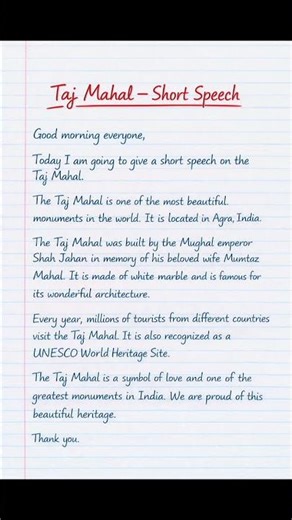 Taj Mahal – Short Speech
Good morning everyone,
Today I am going to give a short speech on the
Taj Mahal.
The Taj Mahal is one of the most beautiful
monuments in the world. It is located in Agra, India.
The Taj Mahal was built by the Mughal emperor
Shah Jahan in memory of his beloved wife Mumtaz
Mahal. It is made of white marble and is famous for
its wonderful architecture.
Every year, millions of tourists from different countries
visit the Taj Mahal. It is also recognized as a
UNESCO World Heritage Site.
The Taj Mahal is a symbol of love and one of the
greatest monuments in India. We are proud of this
beautiful heritage.
Thank you.